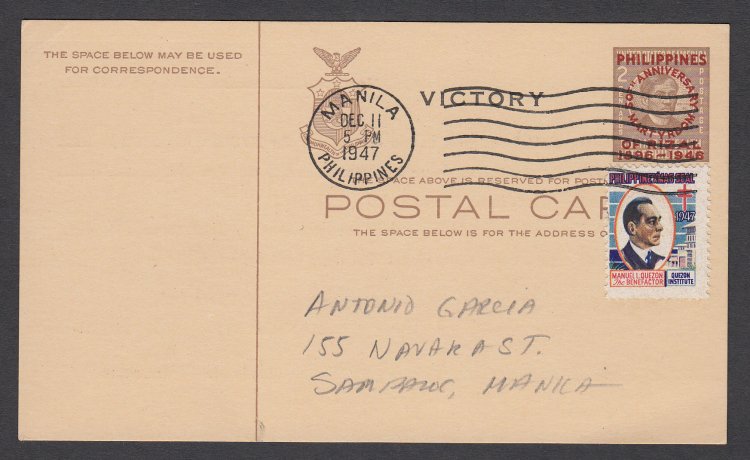 THE SPACE BELOW MAY BE USED
FOR CORRESPONDENCE.
MANILA
DEC 11
5 PM
1947
PHILIPPINES
VICTORY
PHILIPPINES
50TH ANNIVERSARY
MARTYRDOM
OF RIZAL
1896-1946
2
POSTAGE
THE SPACE ABOVE IS RESERVED FOR POSTA
POSTAL CAR
THE SPACE BELOW IS FOR THE ADDRESS O
1947
MANUEL L. QUEZON
The BENEFACTOR
QUEZON
INSTITUTE
ANTONIO GARCIA
155 NAVARA ST.
SAMPALOC, MANILA